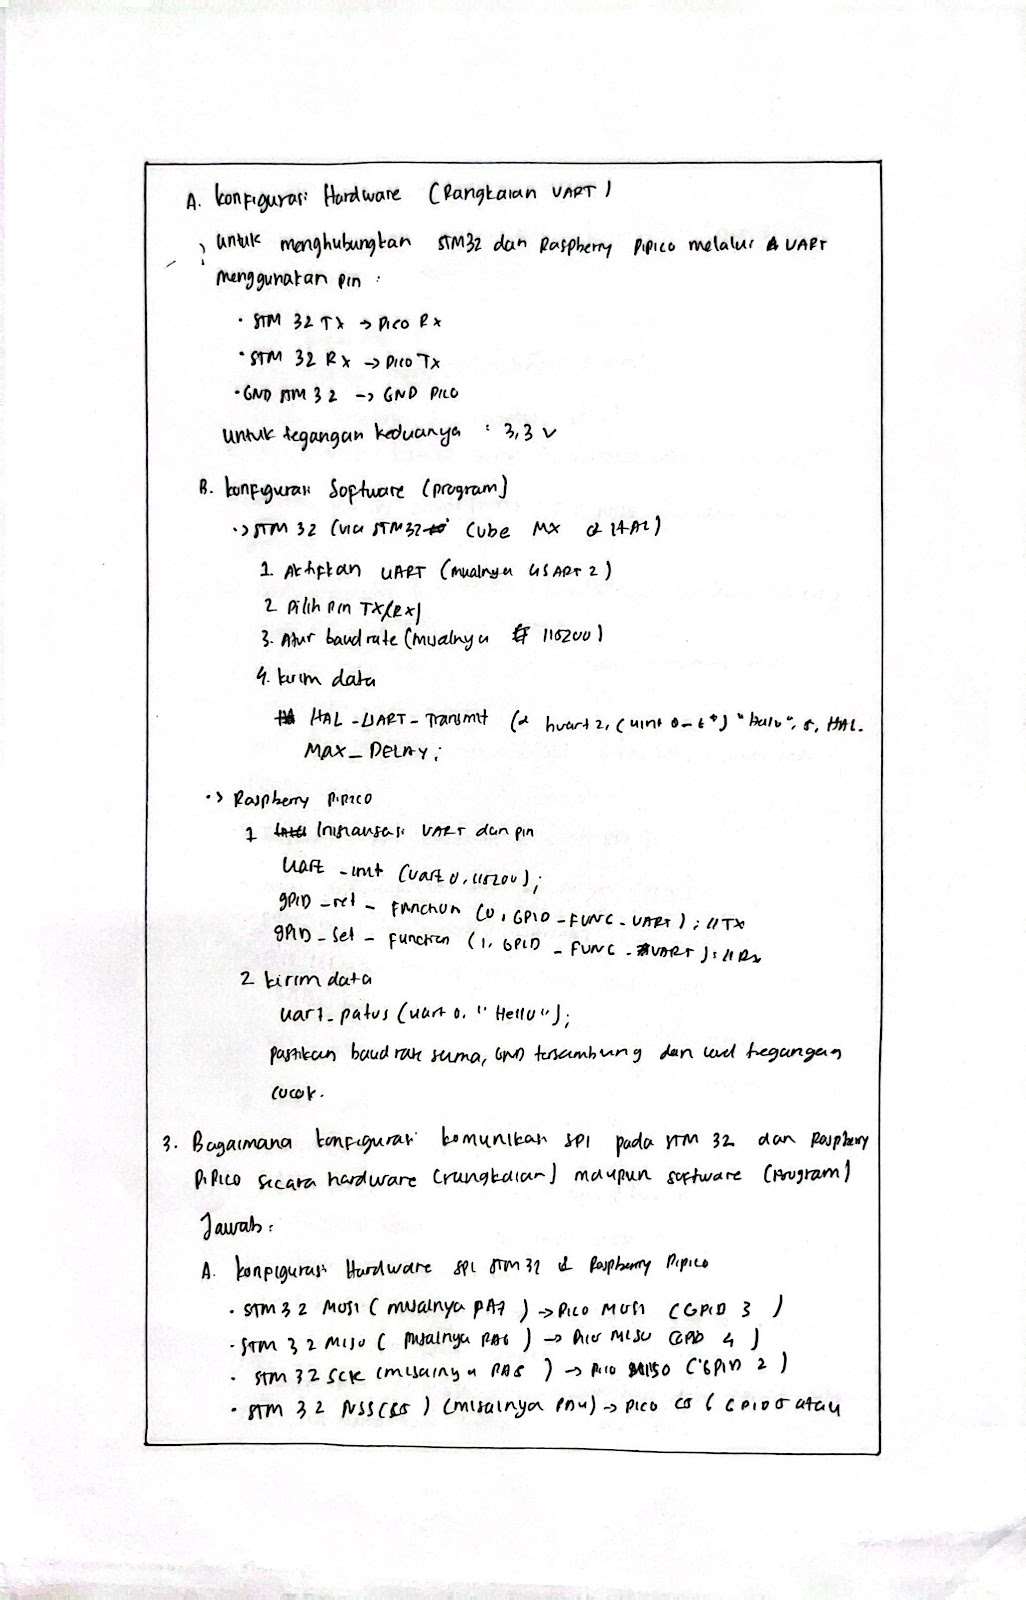 A. Konfigurasi Hardware (Rangkaian UART)
Untuk menghubungkan STM32 dan Raspberry Pi Pico melalui UART
menggunakan pin :
• STM 32 TX -> Pico RX
• STM 32 RX -> Pico TX
• GND STM 32 -> GND Pico
Untuk tegangan keduanya : 3,3 V
B. Konfigurasi Software (program)
-> STM 32 (via STM32 Cube MX & HAL)
1. Aktifkan UART (misalnya USART 2)
2 Pilih pin TX/RX)
3. Atur baudrate (misalnya 115200)
4. Kirim data
HAL_UART_Transmit (& huart2, (uint 8_t*) "halo", 5, HAL_
MAX_DELAY;
-> Raspberry Pi Pico
1 Inisialisasi UART dan pin
Uart_init (uart 0, 115200);
gpio_set_function (0, GPIO_FUNC_UART); // TX
gpio_set_function (1, GPIO_FUNC_UART); // Rx
2 Kirim data
uart_patus (uart 0, "Hello");
Pastikan baud rate sama, GND tersambung dan level tegangan
cocok.
3. Bagaimana konfigurasi komunikasi SPI pada STM 32 dan Raspberry
Pi Pico secara hardware (rangkaian) maupun software (program)
Jawab :
A. Konfigurasi Hardware SPI STM 32 & Raspberry Pi pico
• STM 32 MOSI (misalnya PA7) -> Pico MOSI (GPIO 3 )
• STM 32 MISO ( misalnya PA6 ) -> Pico MISO (GPIO 4 )
• STM 32 SCK (misalnya PA5 ) -> Pico MISO (GPIO 2 )
• STM 32 NSS (SS ) (misalnya PA4) -> Pico CS ( GPIO 5 atau